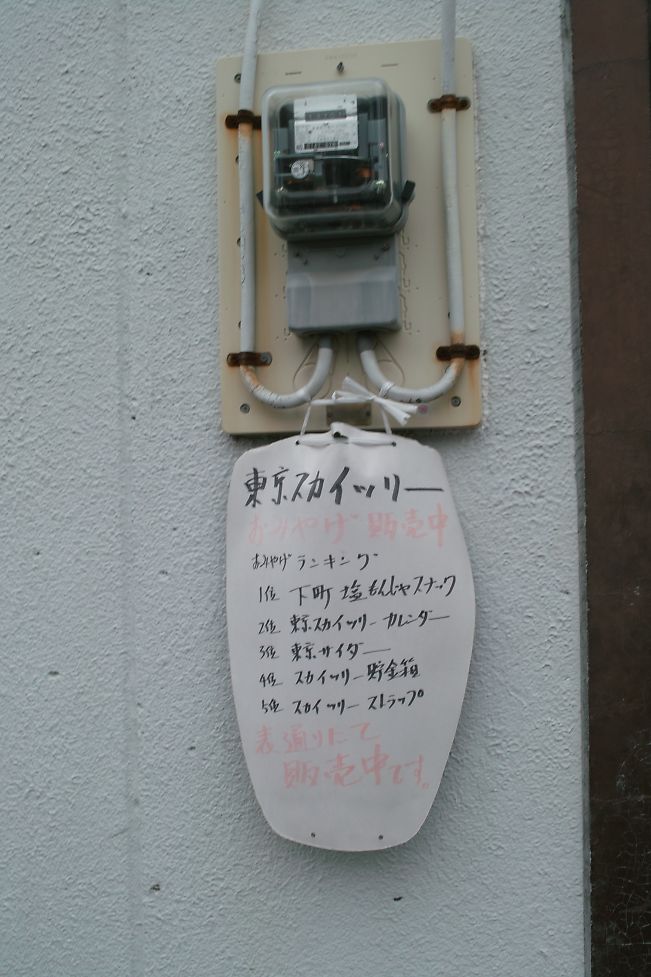 東京スカイツリー
おみやげ 販売中
おみやげ ランキング
1位 下町 塩もんじゃスナック
2位 東京スカイツリー カレンダー
3位 東京サイダー
4位 スカイツリー 貯金箱
5位 スカイツリー ストラップ
表通りにて
販売中です。